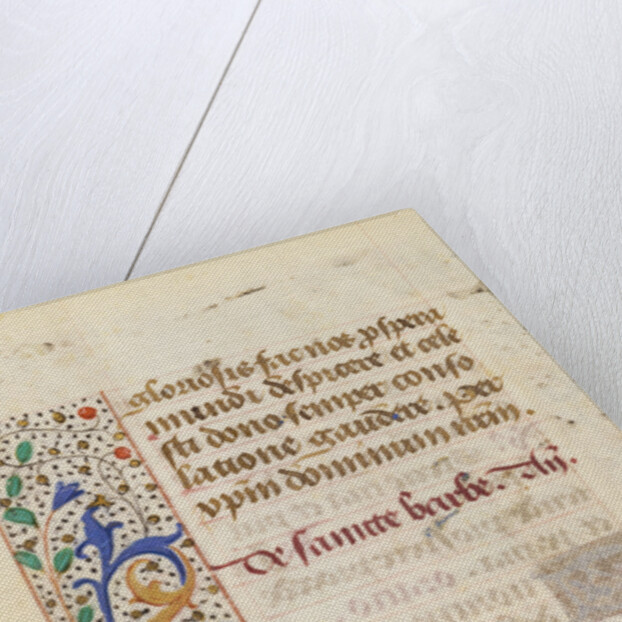 gloriosis fac nos pspera
mundi despicere et cele
sti dono semper conso
latione gaudere. per
xpm dominum nrm.
De sancte barbe.